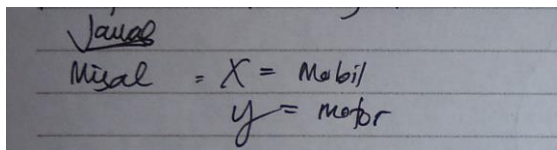 Jawab
Misal = X = Mobil
y = motor